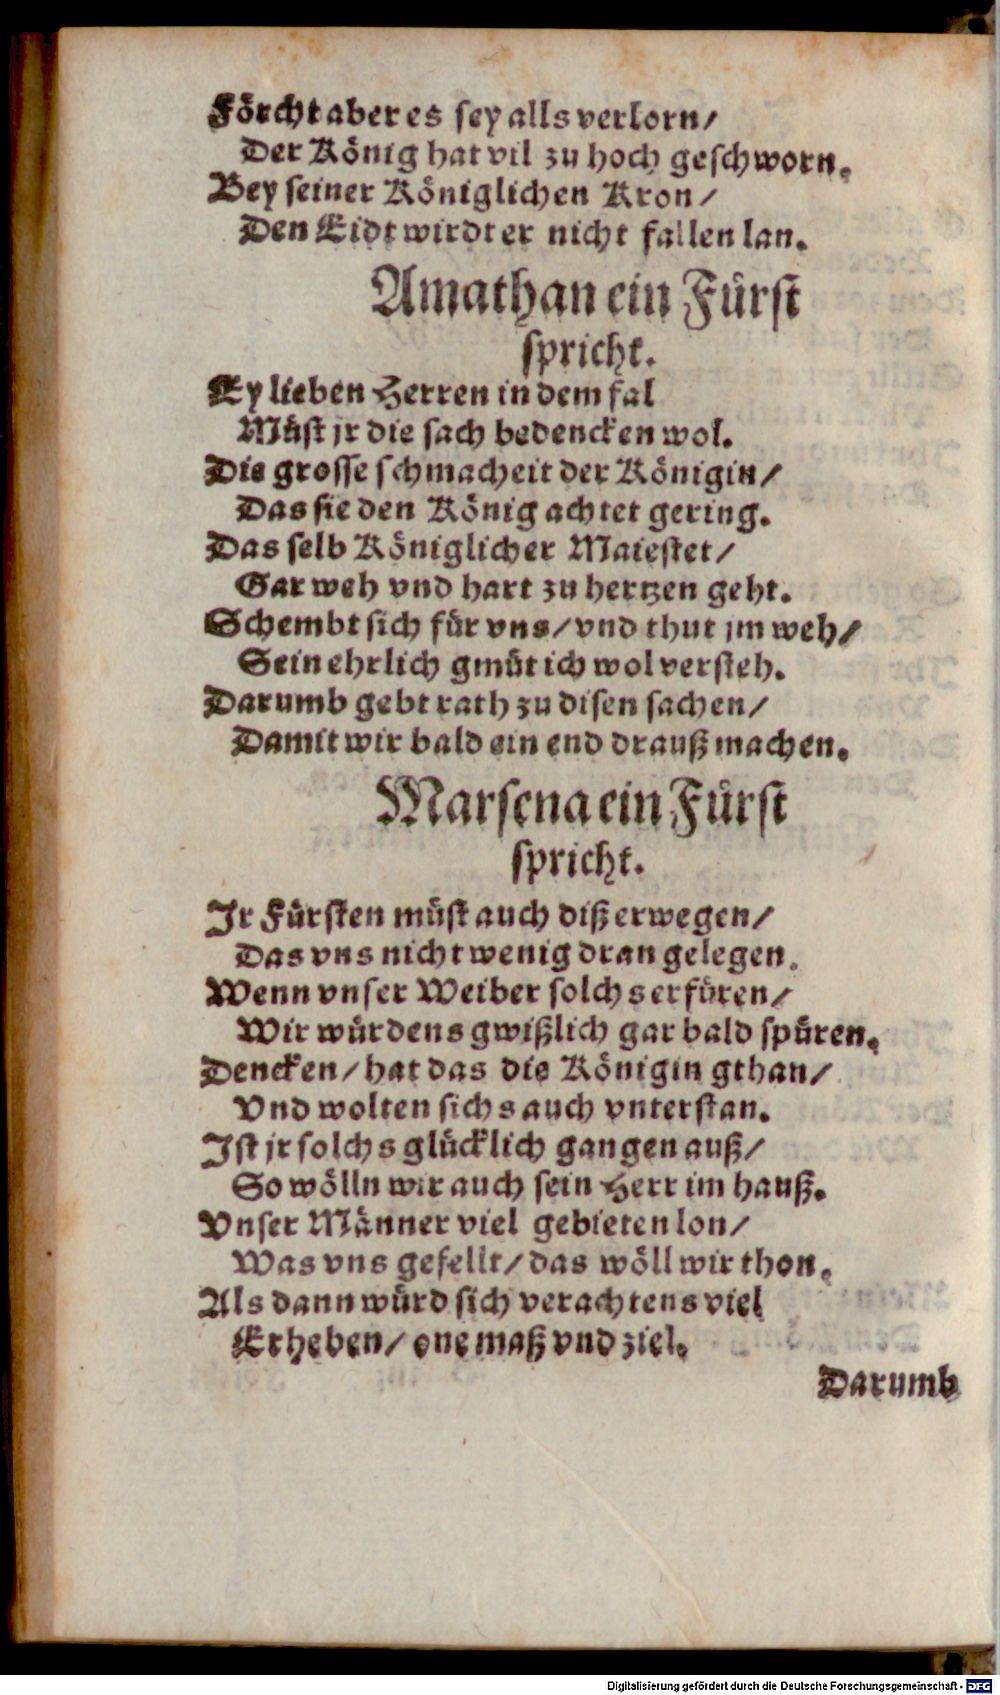 Förcht aber es sey alls verlorn/
Der König hat vil zu hoch geschworn.
Bey seiner Königlichen Kron/
Den Eidt wirdt er nicht fallen lan.
Amathan ein Fürst
spricht.
Ey lieben Herren in dem fal
Müst jr die sach bedencken wol.
Die grosse schmacheit der Königin/
Das sie den König achtet gering.
Das selb Königlicher Maiestet/
Gar weh vnd hart zu hertzen geht.
Schembt sich für vns/ vnd thut jm weh/
Sein ehrlich gmüt ich wol versteh.
Darumb gebt rath zu disen sachen/
Damit wir bald ein end drauß machen.
Marsena ein Fürst
spricht.
Jr Fürsten müst auch diß erwegen/
Das vns nicht wenig dran gelegen.
Wenn vnser Weiber solchs erfüren/
Wir würdens gwißlich gar bald spüren.
Dencken/ hat das die Königin gthan/
Vnd wolten sichs auch vnterstan.
Jst jr solchs glücklich gangen auß/
So wölln wir auch sein Herr im hauß.
Vnser Männer viel gebieten lon/
Was vns gefellt/ das wöll wir thon.
Als dann würd sich verachtens viel
Erheben/ one maß vnd ziel.
Darumb
Digitalisierung gefördert durch die Deutsche Forschungsgemeinschaft - DFG